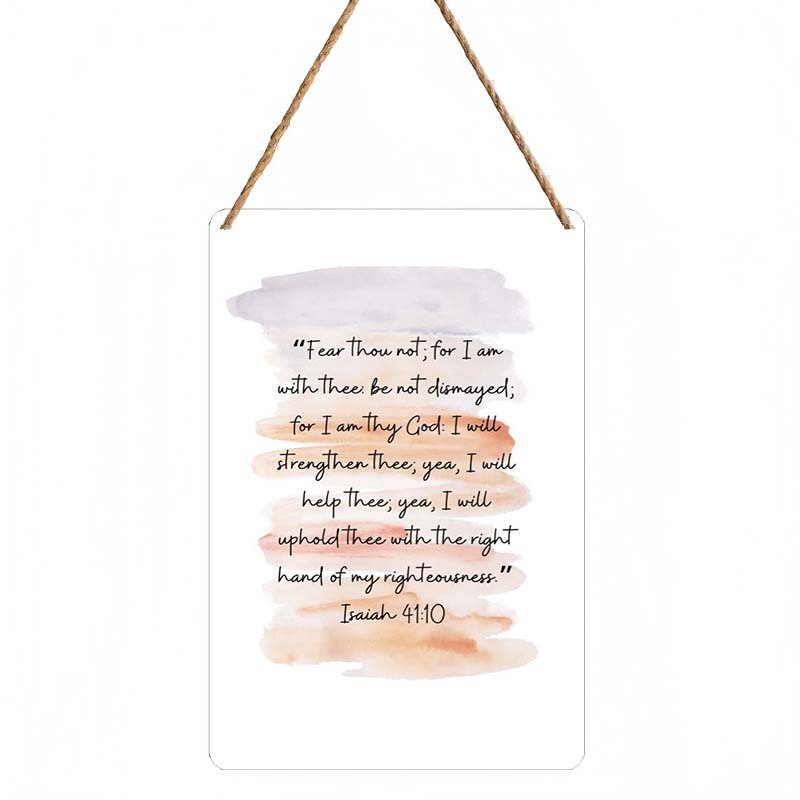 “Fear thou not; for I am
with thee: be not dismayed;
for I am thy God: I will
strengthen thee; yea, I will
help thee; yea, I will
uphold thee with the right
hand of my righteousness.”
Isaiah 41:10